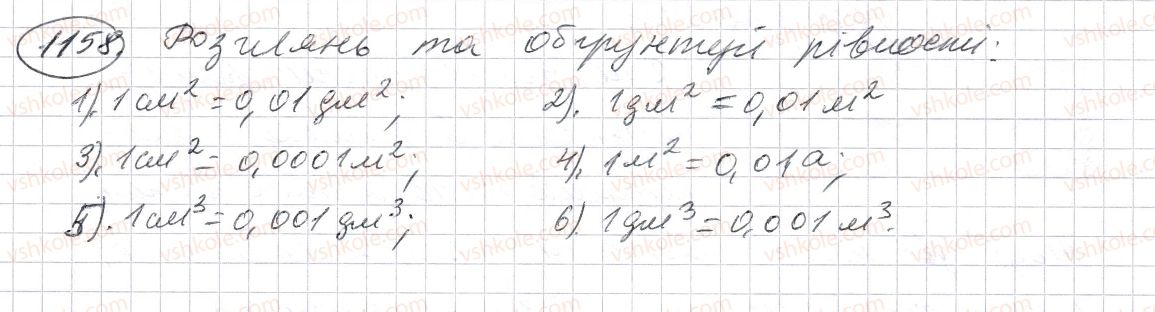 1158 Розглянь та обґрунтуй рівності:
1). 1 см² = 0,01 дм²; 2). 1 дм² = 0,01 м²
3). 1 см² = 0,0001 м²; 4). 1 м² = 0,01 а;
5). 1 см³ = 0,001 дм³; 6). 1 дм³ = 0,001 м³.